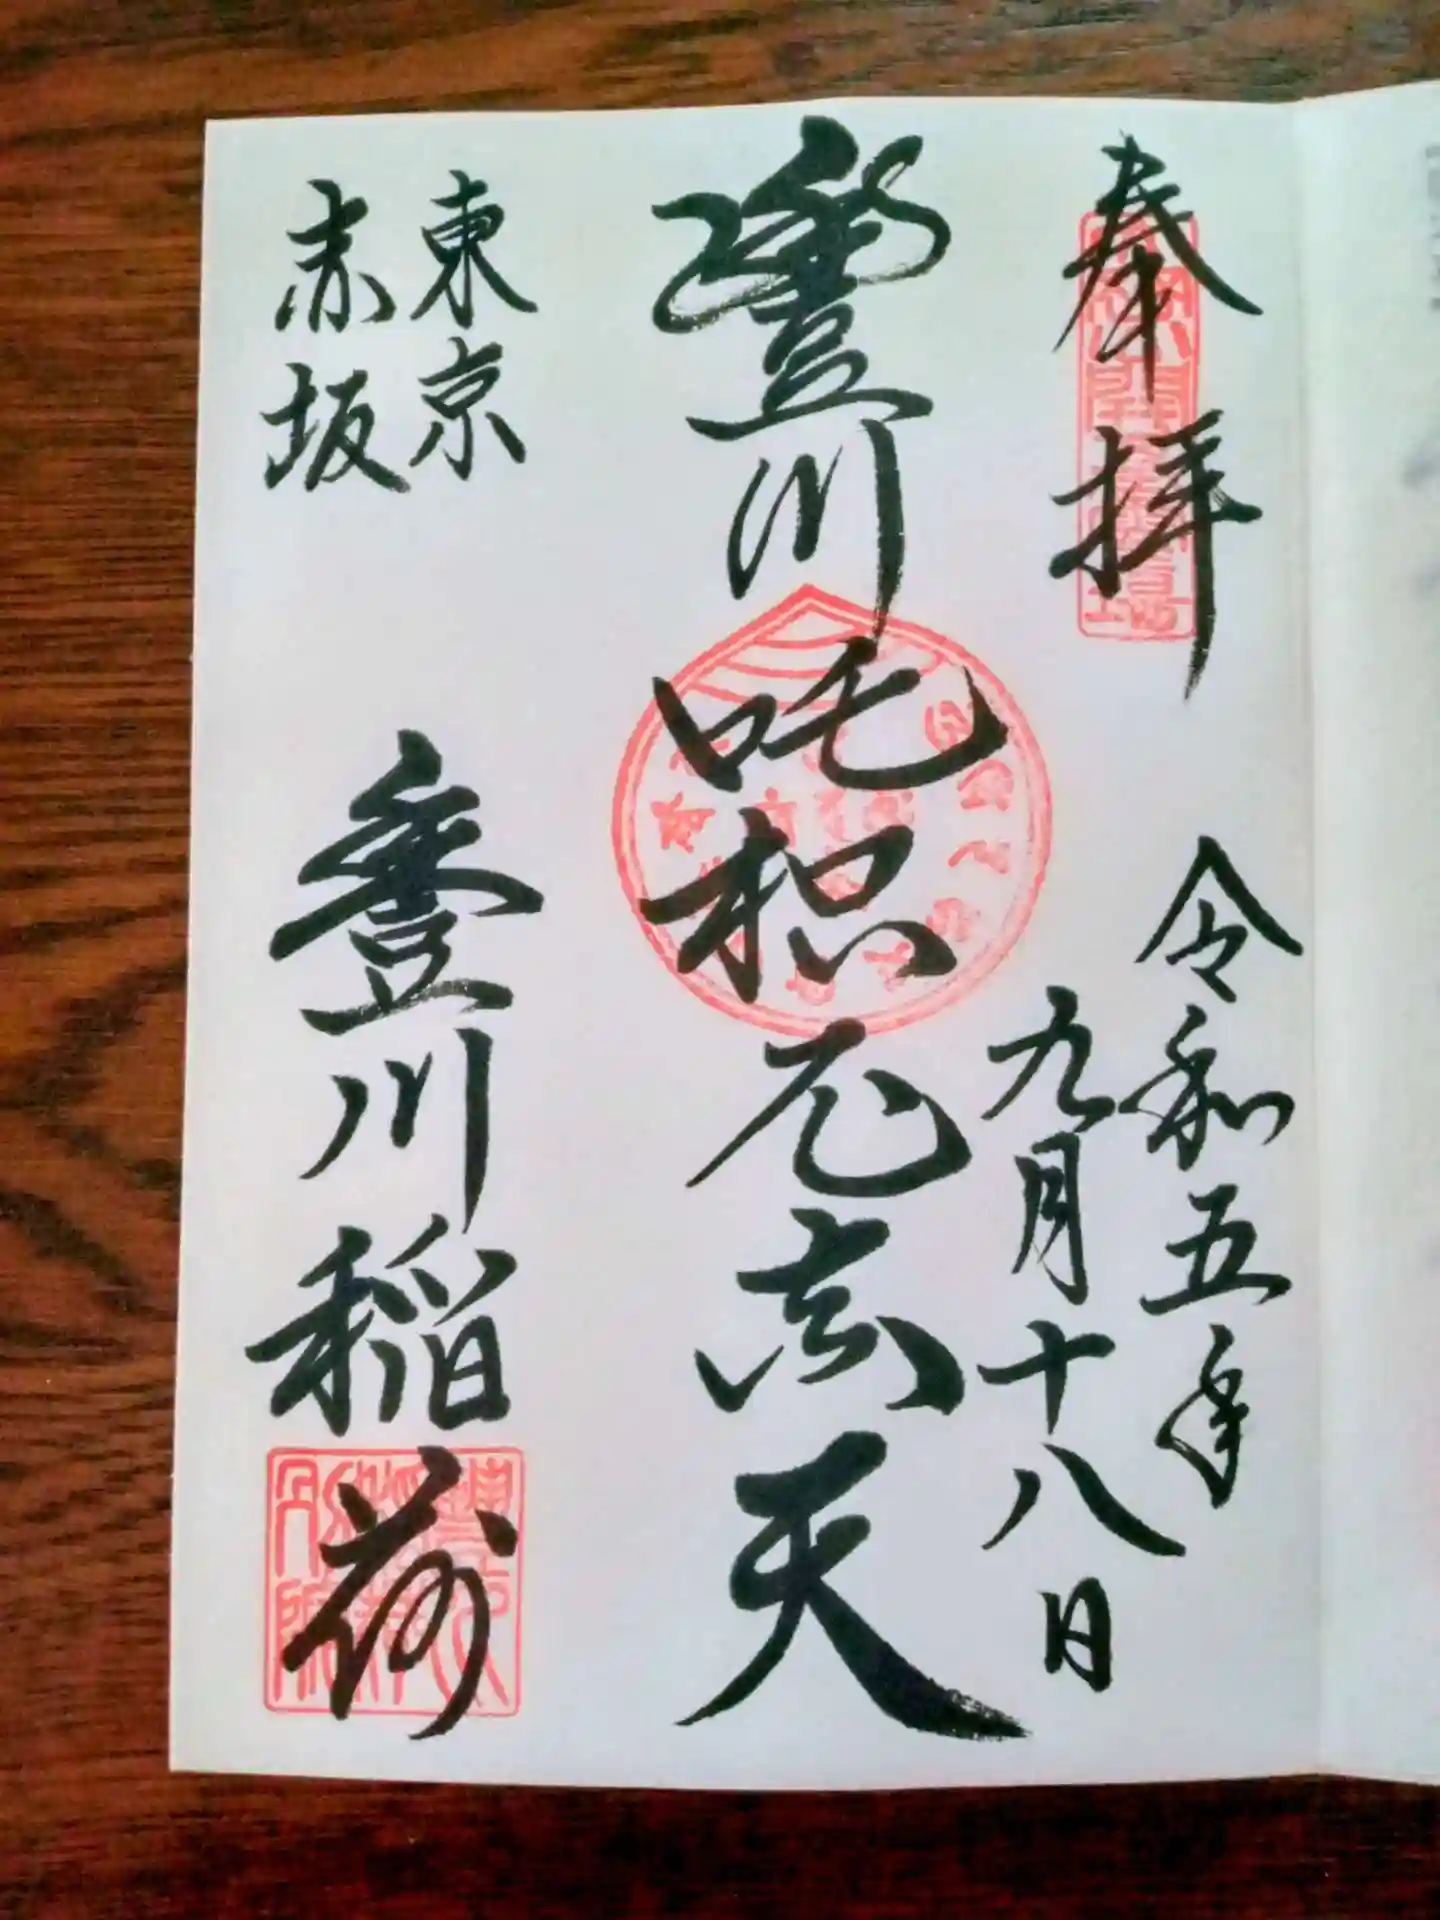 奉拝
令和五年
九月十八日
豐川吒枳尼真天
東京
赤坂
豐川稲荷